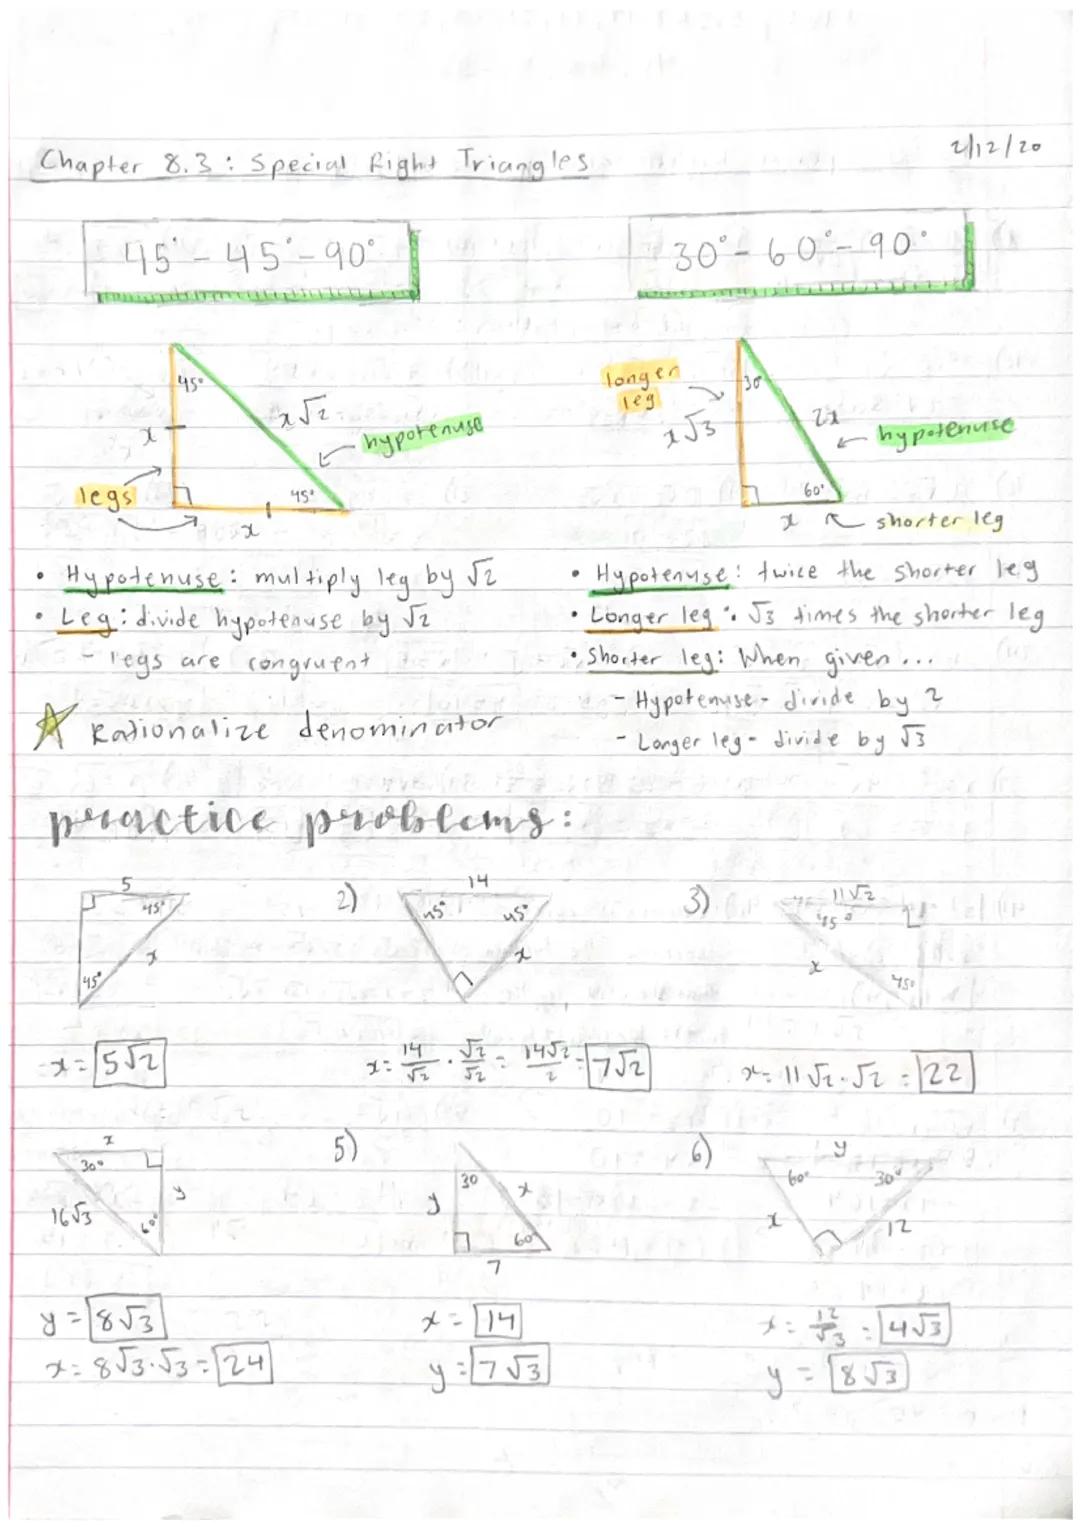 Chapter 8.3: Special Right Triangles
2/12/20
45°-45°-90°
30°-60°-90°
45°
x
x√2
hypotenuse
legs
45°
x
longer
leg
x√3
30
2x
hypotenuse
60°
x
shorter leg
• Hypotenuse: multiply leg by √2
• Leg: divide hypotenuse by √2
- legs are congruent
☆ Rationalize denominator
• Hypotenuse: twice the shorter leg
• Longer leg: √3 times the shorter leg
• Shorter leg: When given...
- Hypotenuse - divide by 2
- Longer leg - divide by √3
practice problems:
5
45°
x
45°
x = 5√2
2)
14
45°
45°
x
x = 14/√2 · √2/√2 = 14√2/2 = 7√2
3)
11√2
45°
x
45°
x = 11√2 · √2 = 22
x
30°
y
16√3
60°
y = 8√3
x = 8√3 · √3 = 24
5)
30
x
y
60
7
x = 14
y = 7√3
6)
y
60°
30°
x
12
x = 12/√3 = 4√3
y = 8√3